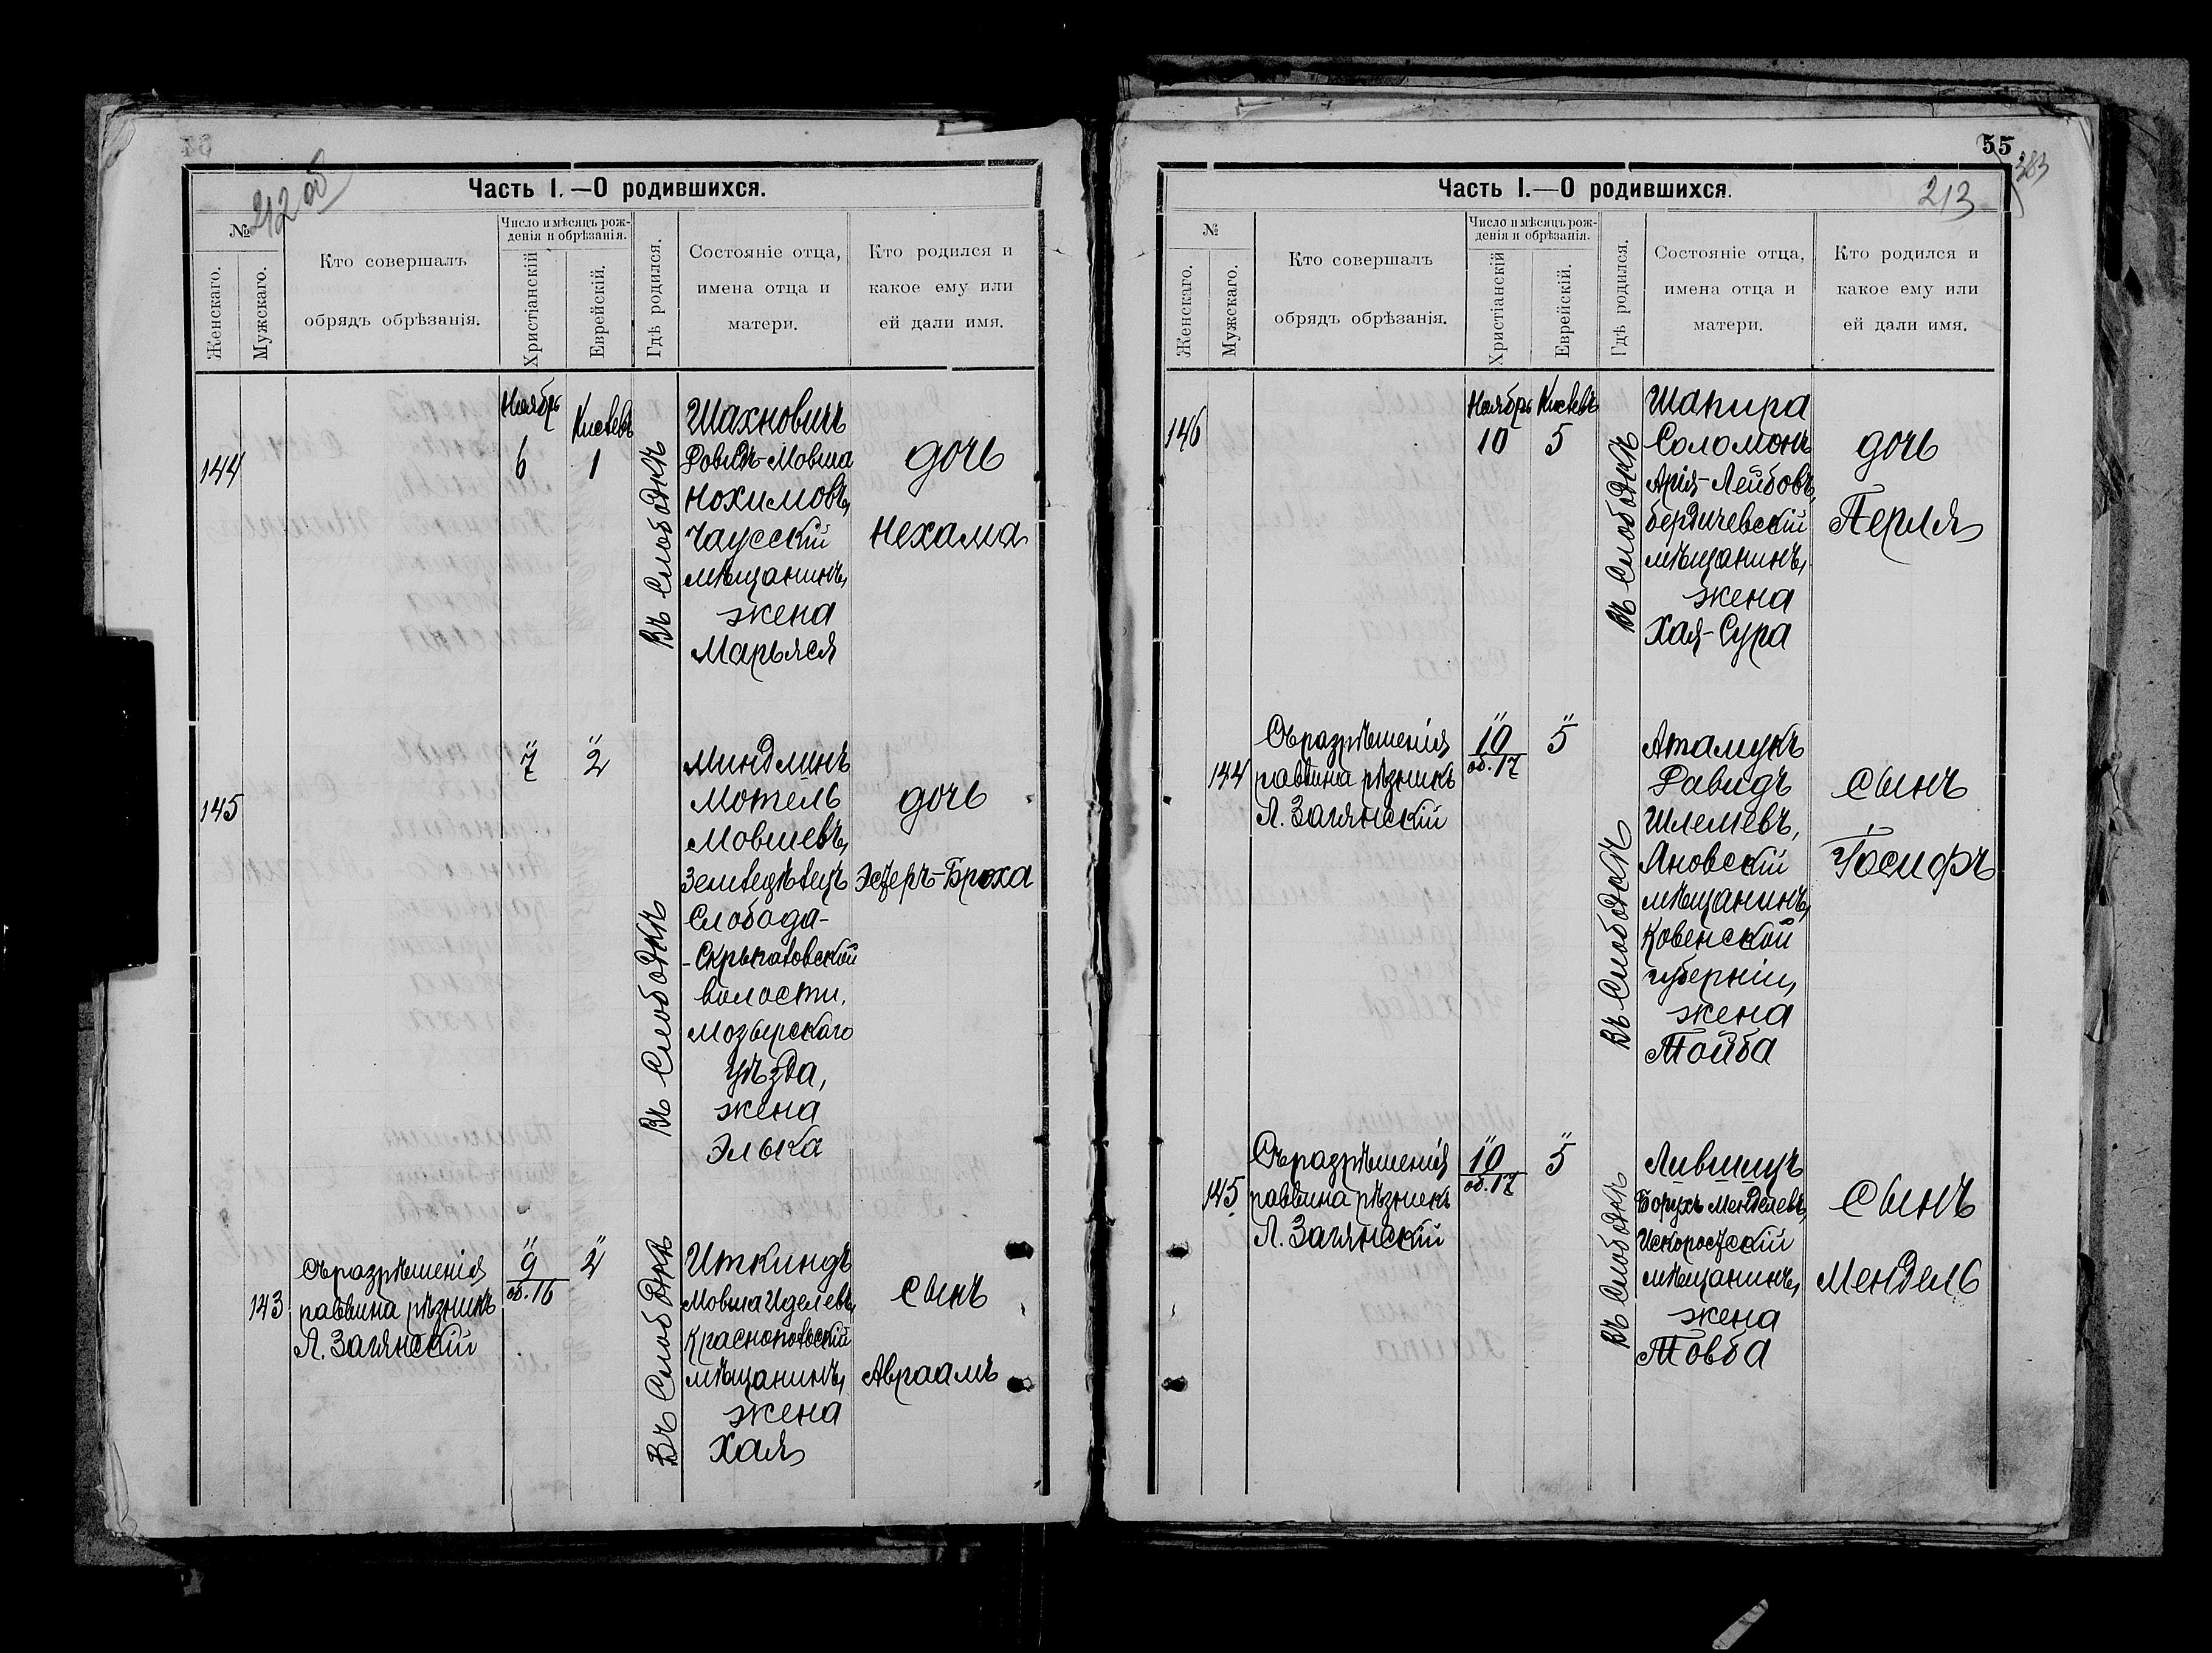 212 об
Часть I.—О родившихся.
№
Женскаго.
Мужскаго.
Кто совершалъ
обрядъ обрѣзанія.
Число и мѣсяцъ рож-
денія и обрѣзанія.
Христіанскій
Еврейскій.
Гдѣ родился.
Состояніе отца,
имена отца и
матери.
Кто родился и
какое ему или
ей дали имя.
144
Ноябрь
6
Кислевъ
1
Въ Слободкѣ
Шахновичъ
Мовша
Нохимовъ,
Чаусскій
мѣщанинъ,
жена
Марьяся
дочь
Нехама
145
" 7
" 2
Въ Слободкѣ
Миндлинъ
Мотель
Мовшевъ,
Земледѣлецъ
Слобода-
-Скрыгаловской
волости,
Мозырскаго
уѣзда,
жена
Элька
дочь
Эсѳеръ-Броха
143
Съ разрѣшенія
раввина рѣзникъ
Л. Заглянскій
" 9
об. 16
" 2
Въ Слободкѣ
Иткиндъ
Мовша Иделевъ,
Краснопольскій
мѣщанинъ,
жена
Хая
сынъ
Авраамъ
55
283
213
Часть I.—О родившихся.
№
Женскаго.
Мужскаго.
Кто совершалъ
обрядъ обрѣзанія.
Число и мѣсяцъ рож-
денія и обрѣзанія.
Христіанскій
Еврейскій.
Гдѣ родился.
Состояніе отца,
имена отца и
матери.
Кто родился и
какое ему или
ей дали имя.
146
Ноябрь
10
Кислевъ
5
Въ Слободкѣ
Шапира
Соломонъ
Арія-Лейбовъ,
бердичевскій
мѣщанинъ,
жена
Хая-Сура
дочь
Перля
144
Съ разрѣшенія
раввина рѣзникъ
Л. Заглянскій
" 10
об. 17
" 5
Въ Слободкѣ
Атамукъ
Давидъ
Шлемевъ,
Яновскій
мѣщанинъ,
Ковенской
губерніи,
жена
Тойба
сынъ
Іосифъ
145
Съ разрѣшенія
раввина рѣзникъ
Л. Заглянскій
" 10
об. 17
" 5
Въ Слободкѣ
Лившицъ
Борухъ Менделевъ,
Искоростскій
мѣщанинъ,
жена
Товба
сынъ
Мендель